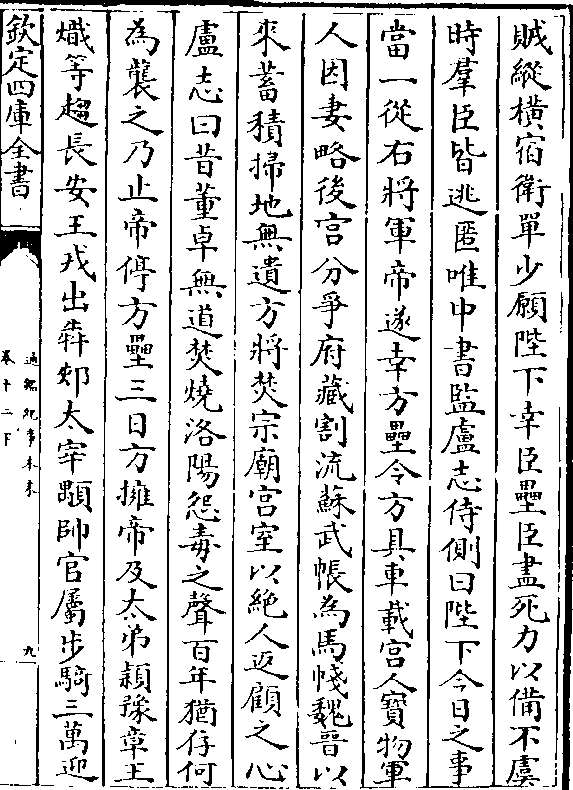 賊縱橫宿衛單少願陛下幸臣壘臣盡死力以備不虞
時羣臣皆逃匿唯中書監盧志侍側曰陛下今日之事
當一從右將軍帝遂幸方壘令方具車載宫人寳物軍
人因妻略後宫分爭府藏割流蘇武帳為馬㡞魏晉以
來蓄積掃地無遺方將焚宗廟宫室以絶人返顧之心
盧志曰昔董卓無道焚燒洛陽怨毒之聲百年猶存何
為襲之乃止帝停方壘三日方擁帝及太弟穎豫章王
熾等趨長安王戎出奔郟太宰顒帥官屬步騎三萬迎
欽定四庫全書
通鑑紀事本末
卷十二下
九